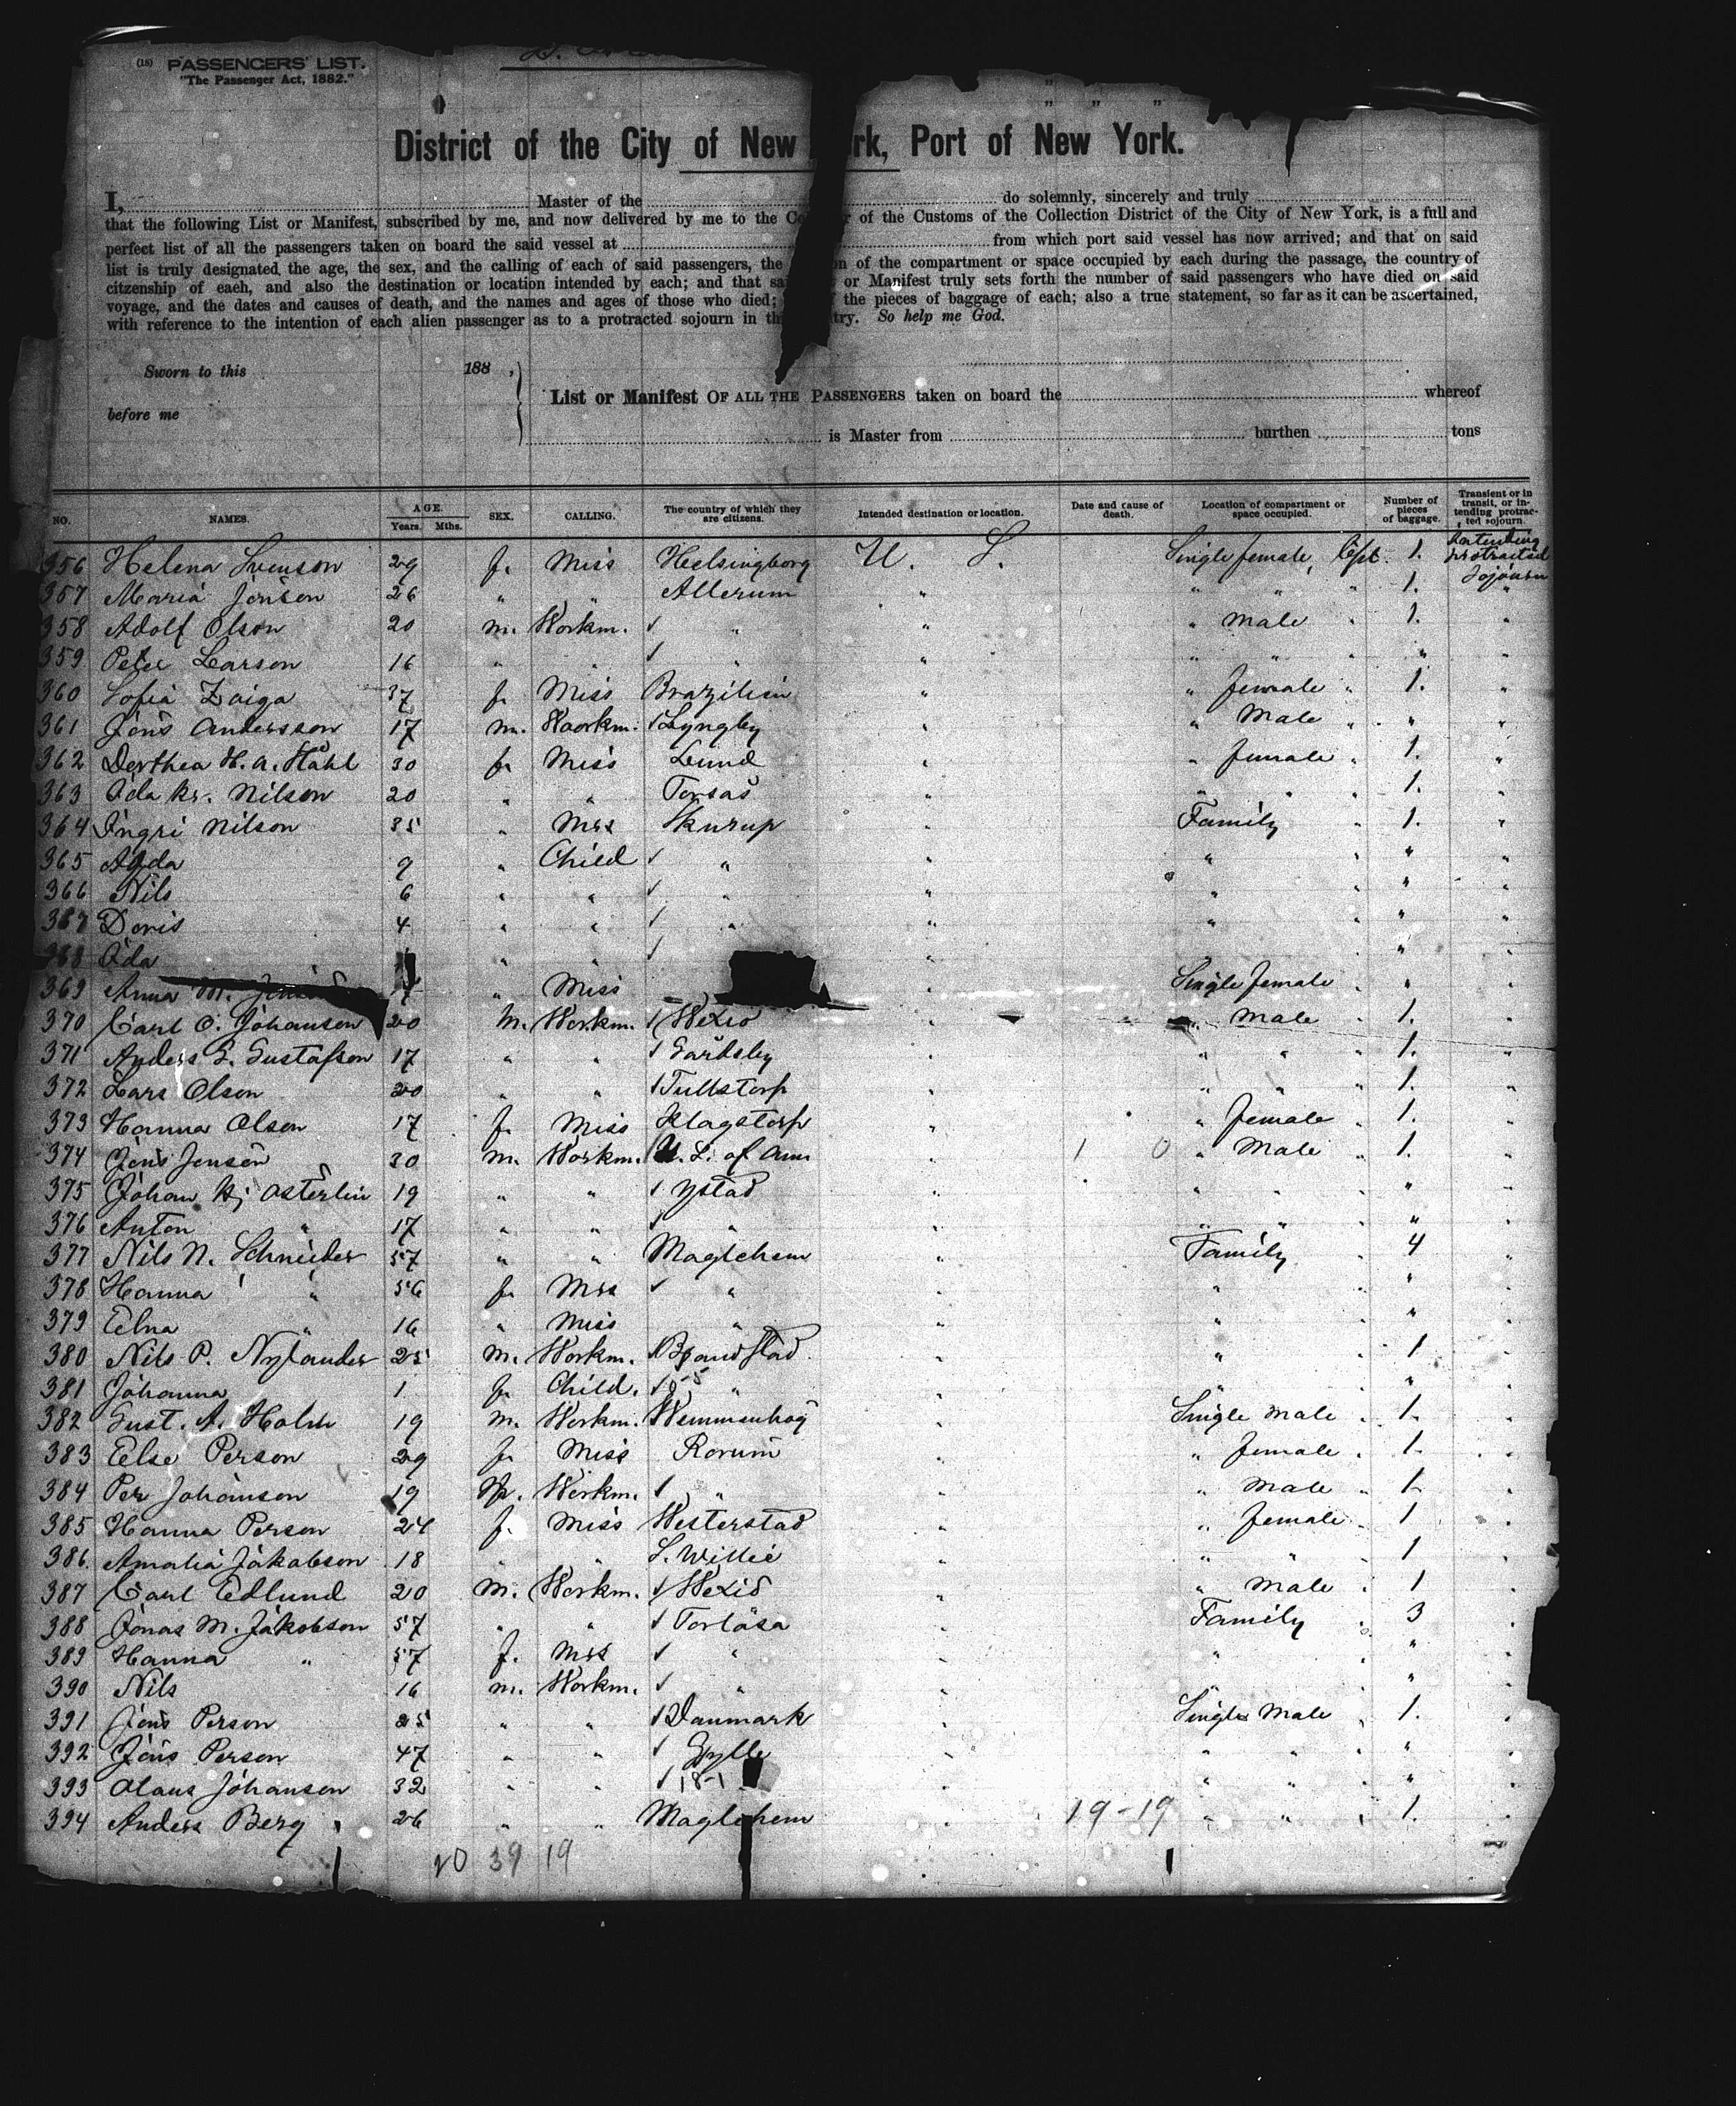 (18) PASSENGERS' LIST.
"The Passenger Act, 1882."
District of the City of New rk, Port of New York.
I, Master of the do solemnly, sincerely and truly
that the following List or Manifest, subscribed by me, and now delivered by me to the Co r of the Customs of the Collection District of the City of New York, is a full and
perfect list of all the passengers taken on board the said vessel at from which port said vessel has now arrived; and that on said
list is truly designated the age, the sex, and the calling of each of said passengers, the on of the compartment or space occupied by each during the passage, the country of
citzenship of eaeh, and also the destination or location intended by each; and that sa or Manifest truly sets forth the number of said passengers who have died on said
voyage, and the dates and causes of death, and the names and ages of those who died; the pieces of baggage of each; also a true statement, so far as it can be ascertained,
with reference to the intention of each alien passenger as to a protracted sojourn in th try. So help me God.
Sworn to this 188 ,
before me
List or Manifest OF ALL THE PASSENGERS taken on board the whereof
is Master from burthen tons
NO. NAMES. AGE. Years. Mths. SEX. CALLING. The country of which they are citizens. Intended destination or location. Date and cause of death. Location of compartment or space occupied. Number of pieces of baggage. Transient or in transit, or intending protracted sojourn.
356 Helena Svenson 29 f. Miss Helsingborg U. S. Single female, Cpt. 1. Intending protracted Sojourn
357 Maria Jönson 26 " " Allerum " " " 1. "
358 Adolf Olson 20 m. Workm. " " " Male " 1. "
359 Peter Larson 16 " " " " " " " " "
360 Sofia Zaiga 37 f. Miss Brazilien " " female " 1. "
361 Jöns Andersson 17 m. Woorkm. Lyngby " " Male " " "
362 Dorthea H. A. Ståhl 30 f. Miss Lund " " female " 1. "
363 Ida Kr. Nilson 20 " " Torsås " " " 1. "
364 Ingri Nilson 35 " Mrs Skurup " Family " 1. "
365 Agda 9 " Child " " " " " "
366 Nils 6 " " " " " " " "
367 Doris 4 " " " " " " " "
368 Ida " " " " " "
369 Anna M. " Miss Single female " " "
370 Carl O. Johanson 20 m. Workm. Wexiö " " Male " 1. "
371 Anders G. Gustafson 17 " " Gårdsby " " " " 1. "
372 Lars Olson 20 " " Tullstorp " " " " 1. "
373 Hanna Olson 17 f. Miss Klagstorp " " female " 1. "
374 Jöns Jensen 30 m. Workm. U. S. of Am " 1 0 " Male " 1. "
375 Johan Hj Osterlin 19 " " Ystad " " " " " "
376 Anton " 17 " " " " " " " "
377 Nils N. Schneider 57 " " Maglehem " Family " 4 "
378 Hanna " 56 f. Mrs " " " " " "
379 Elna " 16 " Miss " " " " " "
380 Nils P. Nylander 25 m. Workm. Brandstad " " " 1 "
381 Johanna 1 f. Child. " " " "
382 Gust. A. Holm 19 m. Workm. Wemmenhög " Single Male " 1. "
383 Else Person 29 f. Miss Rorum " " female " 1. "
384 Per Johanson 19 m. Workm. " " " Male " 1. "
385 Hanna Person 24 f. Miss Westerstad " " female " 1 "
386. Amalia Jakobson 18 " " S. Willie " " " 1 "
387 Carl Edlund 20 m. Workm. Wexiö " " Male " 1 "
388 Jonas M. Jakobson 57 " " Torlösa " Family " 3 "
389 Hanna " 57 f. Mrs " " " " "
390 Nils 16 m. Workm. " " " " "
391 Jöns Person 25 " " Danmark " Single Male " 1. "
392 Jöns Person 47 " " Gylle " " " " " "
393 Olaus Johanson 32 " " 18-1 " " " " " "
394 Anders Berg 26 " " Maglehem " 19-19 " " " 1. "
20 39 19